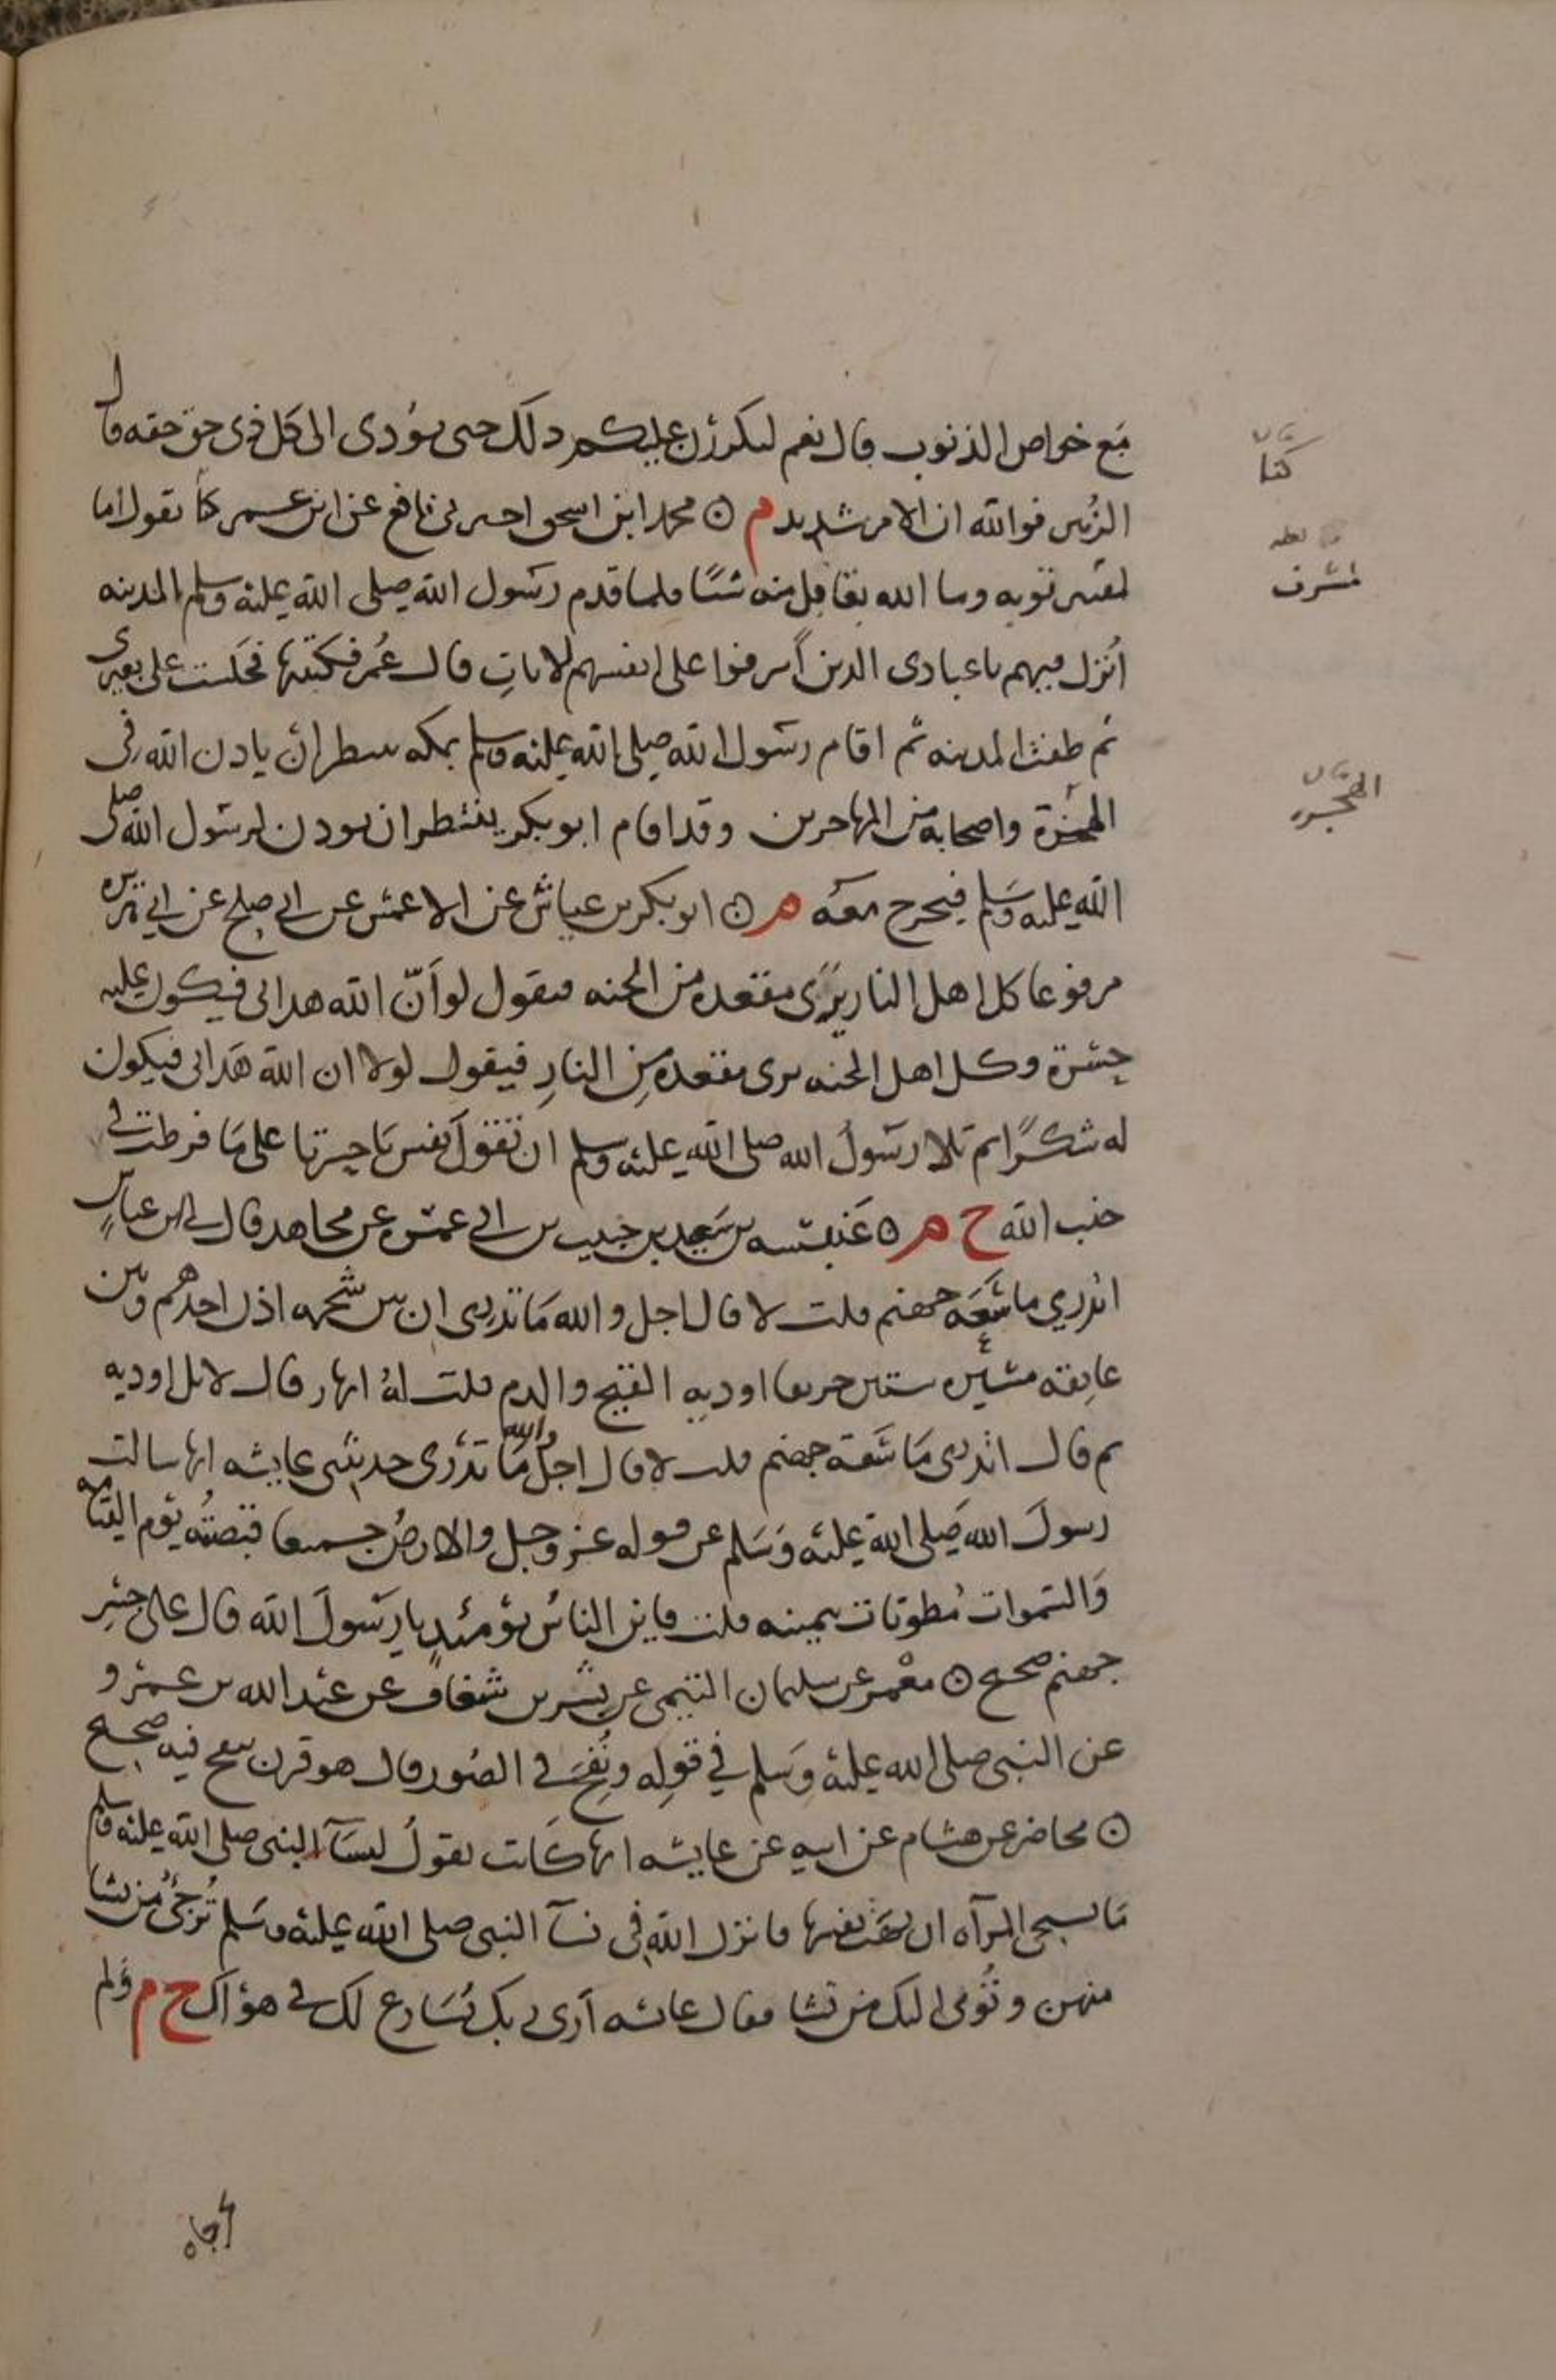 مع خواص الذنوب قال نعم ليكررن عليكم ذلك حتى يؤدى الى كل ذى حق حقه قال
الزبير فوالله ان الامر شديد م ۞ محمد ابن اسحق اخبرنى نافع عن ابن عمر كنا نقول اما
توبه وما الله بقابل منه شيئا فلما قدم رسول الله صلى الله عليه وسلم المدينه
انزل فيهم ياعبادى الذين اسرفوا على انفسهم الايات قال عمر فكتبتها فجلست على بعيرى
ثم طفت المدينه ثم اقام رسول الله صلى الله عليه وسلم بمكه ينتظر ان ياذن الله فى
الهجرة واصحابه من المهاجرين وقد اقام ابو بكر ينتظر ان يوذن لرسول الله صلى
الله عليه وسلم فيخرج معه م ۞ ابو بكر بن عياش عن الاعمش عن ابى صلح عن ابى هريره
مرفوعا كل اهل النار يرى مقعده من الجنه فيقول لو أن الله هدانى فيكون عليه
حسرة وكل اهل الجنه يرى مقعده من النار فيقول لولا ان الله هدانى فيكون
له شكرا ثم تلا رسول الله صلى الله عليه وسلم ان تقول نفس ياحسرتا على ما فرطت فى
جنب الله خ م ۞ عنبسه بن سعيد بن حبيب بن ابى عمش عن مجاهد قال لى ابن عباس
اتدري ما سعة جهنم قلت لا قال اجل والله ما تدرى ان بين شحمه اذن احدهم وبين
عاتقه مسيره ستين خريفا اوديه القيح والدم قلت له انهار قال لا بل اوديه
ثم قال اتدرى ما سعة جهنم قلت لا قال اجل والله ما تدرى حدثتنى عايشه انها سالت
رسول الله صلى الله عليه وسلم عن قوله عز وجل والارض جميعا قبضته يوم القيامه
والسموات مطويات بيمينه قلت فاين الناس يومئذ يا رسول الله قال على جسر
جهنم صحيح ۞ معمر عن سليمان التيمى عن بشر بن شغاف عن عبد الله بن عمرو
عن النبى صلى الله عليه وسلم في قوله ونفخ فى الصور قال هو قرن ينفخ فيه صحيح
۞ محاضر عن هشام عن ابيه عن عايشه انها كانت تقول لنسآ النبى صلى الله عليه وسلم
ما تستحى المرآه ان تهب نفسها فانزل الله فى نسآ النبى صلى الله عليه وسلم ترجئ من تشا
منهن وتؤى اليك من تشا فقال عائشه أرى ربك يسارع لك فى هواك خ م ولم
كنا
لعله
لمسرف
الهجره